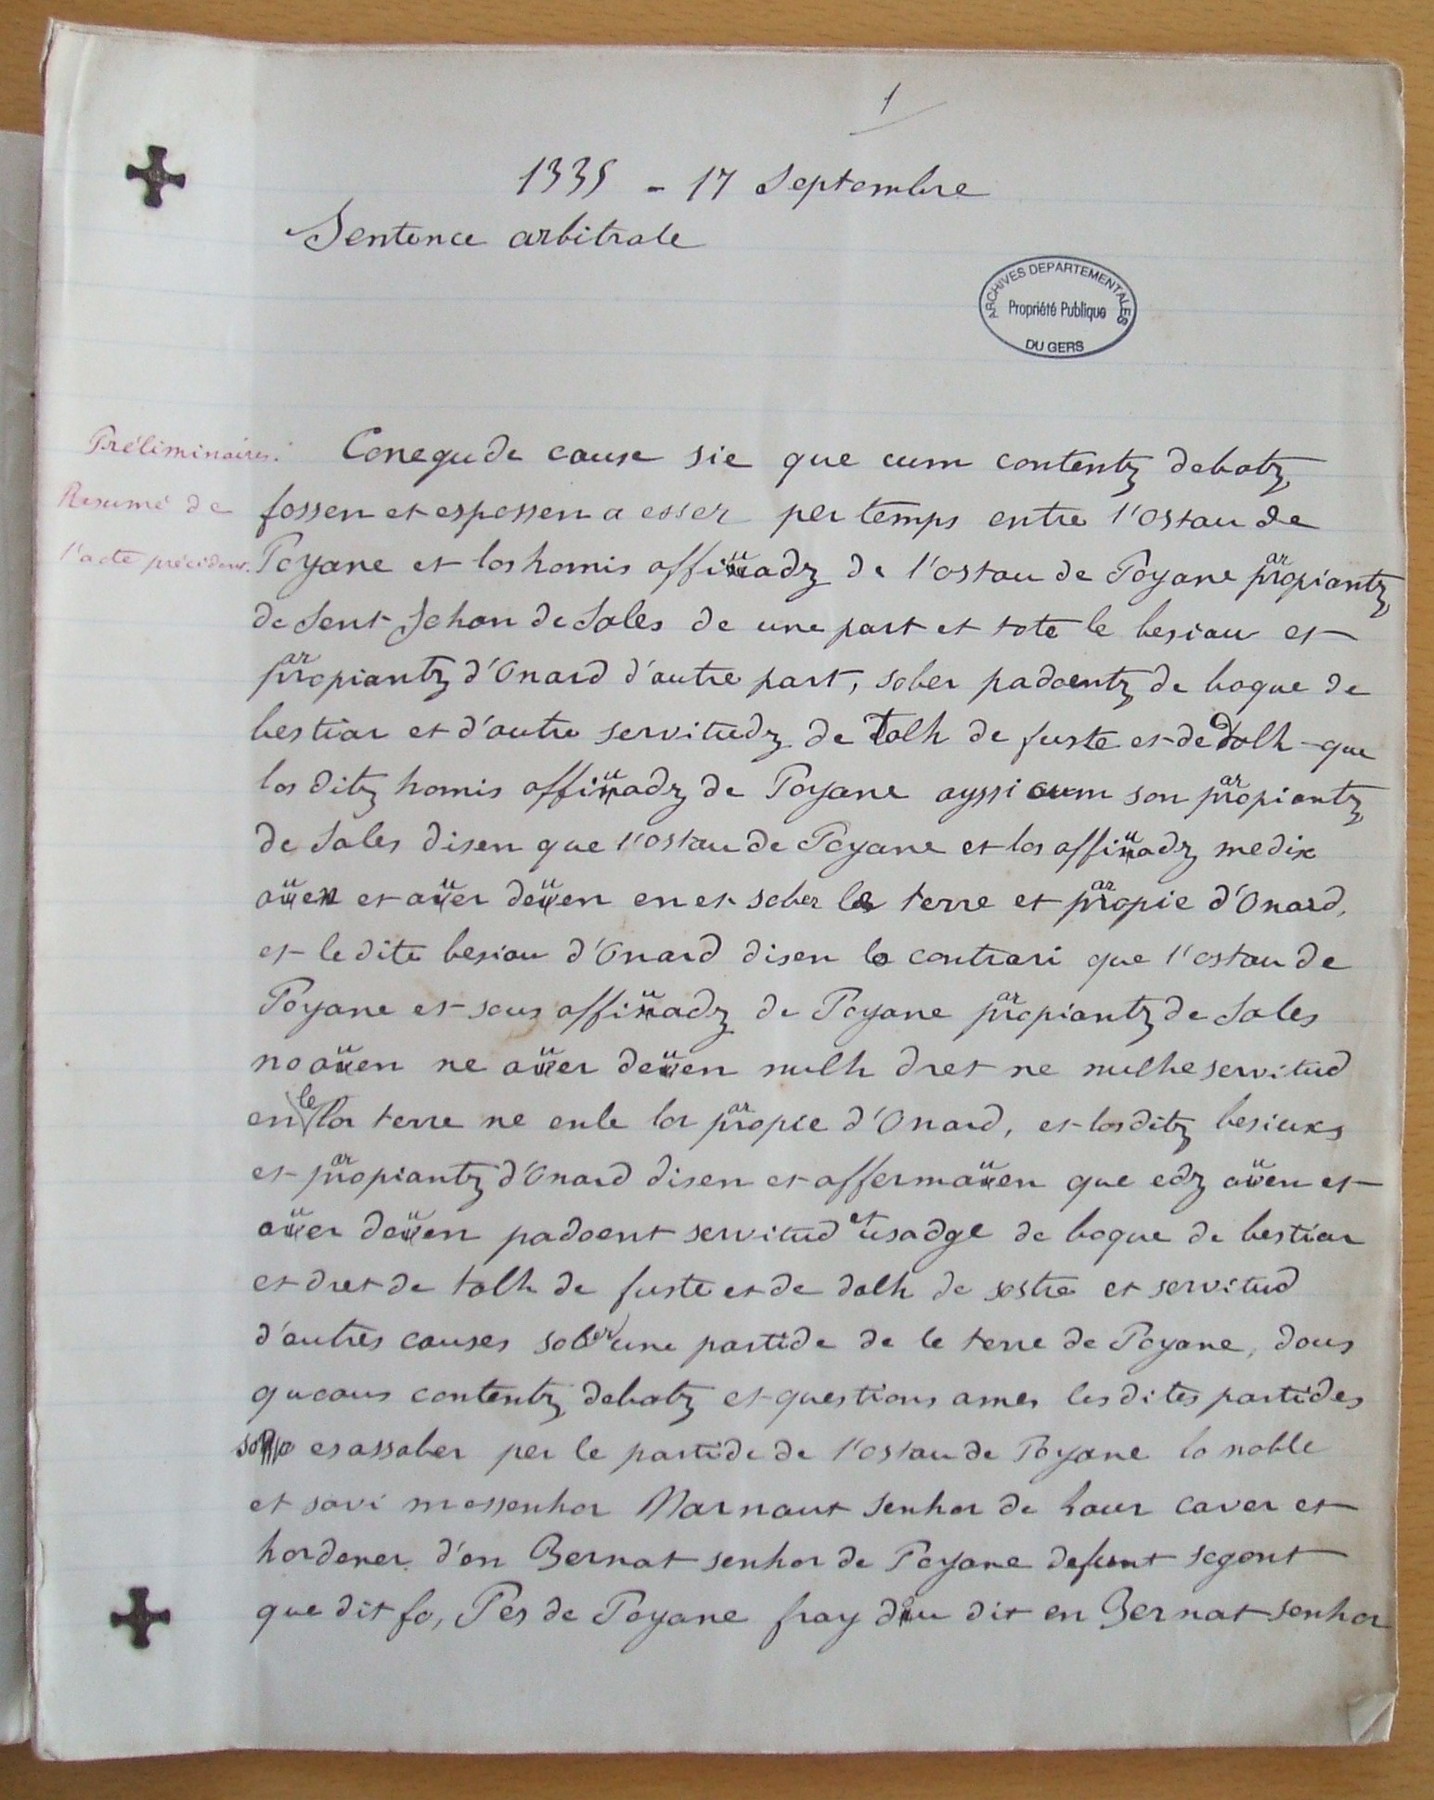 1
1335 - 17 Septembre
Sentence arbitrale
ARCHIVES DEPARTEMENTALES
Propriété Publique
DU GERS
Préliminaires.
Résumé de
l'acte précédent.
Conegude cause sie que cum contentz debatz
fossen et espessen a esser per temps entre l'ostau de
Poyane et los homis affiuadz de l'ostau de Poyane parropiantz
de Sent Jehan de Sales de une part et tote le besiau et
parropiantz d'Onard d'autre part, sober padoentz de boque de
bestiar et d'autre servitudz de Talh de fuste et de Dalh que
los ditz homis affiuadz de Poyane ayssi cum son parropiantz
de Sales disen que l'ostau de Poyane et los affiuadz medix
auen et auer deuen en et sober le terre et parropie d'Onard,
et le dite besiau d'Onard disen lo contrari que l'ostau de
Poyane et sous affiuadz de Poyane parropiantz de Sales
no auen ne auer deuen nulh dret ne nulhe servitud
en le lor terre ne en le lor parropie d'Onard, et los ditz besiuxs
et parropiantz d'Onard disen et affermauen que edz auen et
auer deuen padoent servitud et usadge de boque de bestiar
et dret de talh de fuste et de dalh de sostre et servitud
d'autres causes sober une partide de le terre de Poyane, dous
quoaus contentz debatz et questions ames les dites partides
so es assaber per le partide de l'ostau de Poyane lo noble
et savi messenhor Narnaut senhor de Laur caver et
hordener d'en Bernat senhor de Poyane defunt segont
que dit fo, Pes de Poyane fray dou dit en Bernat senhor